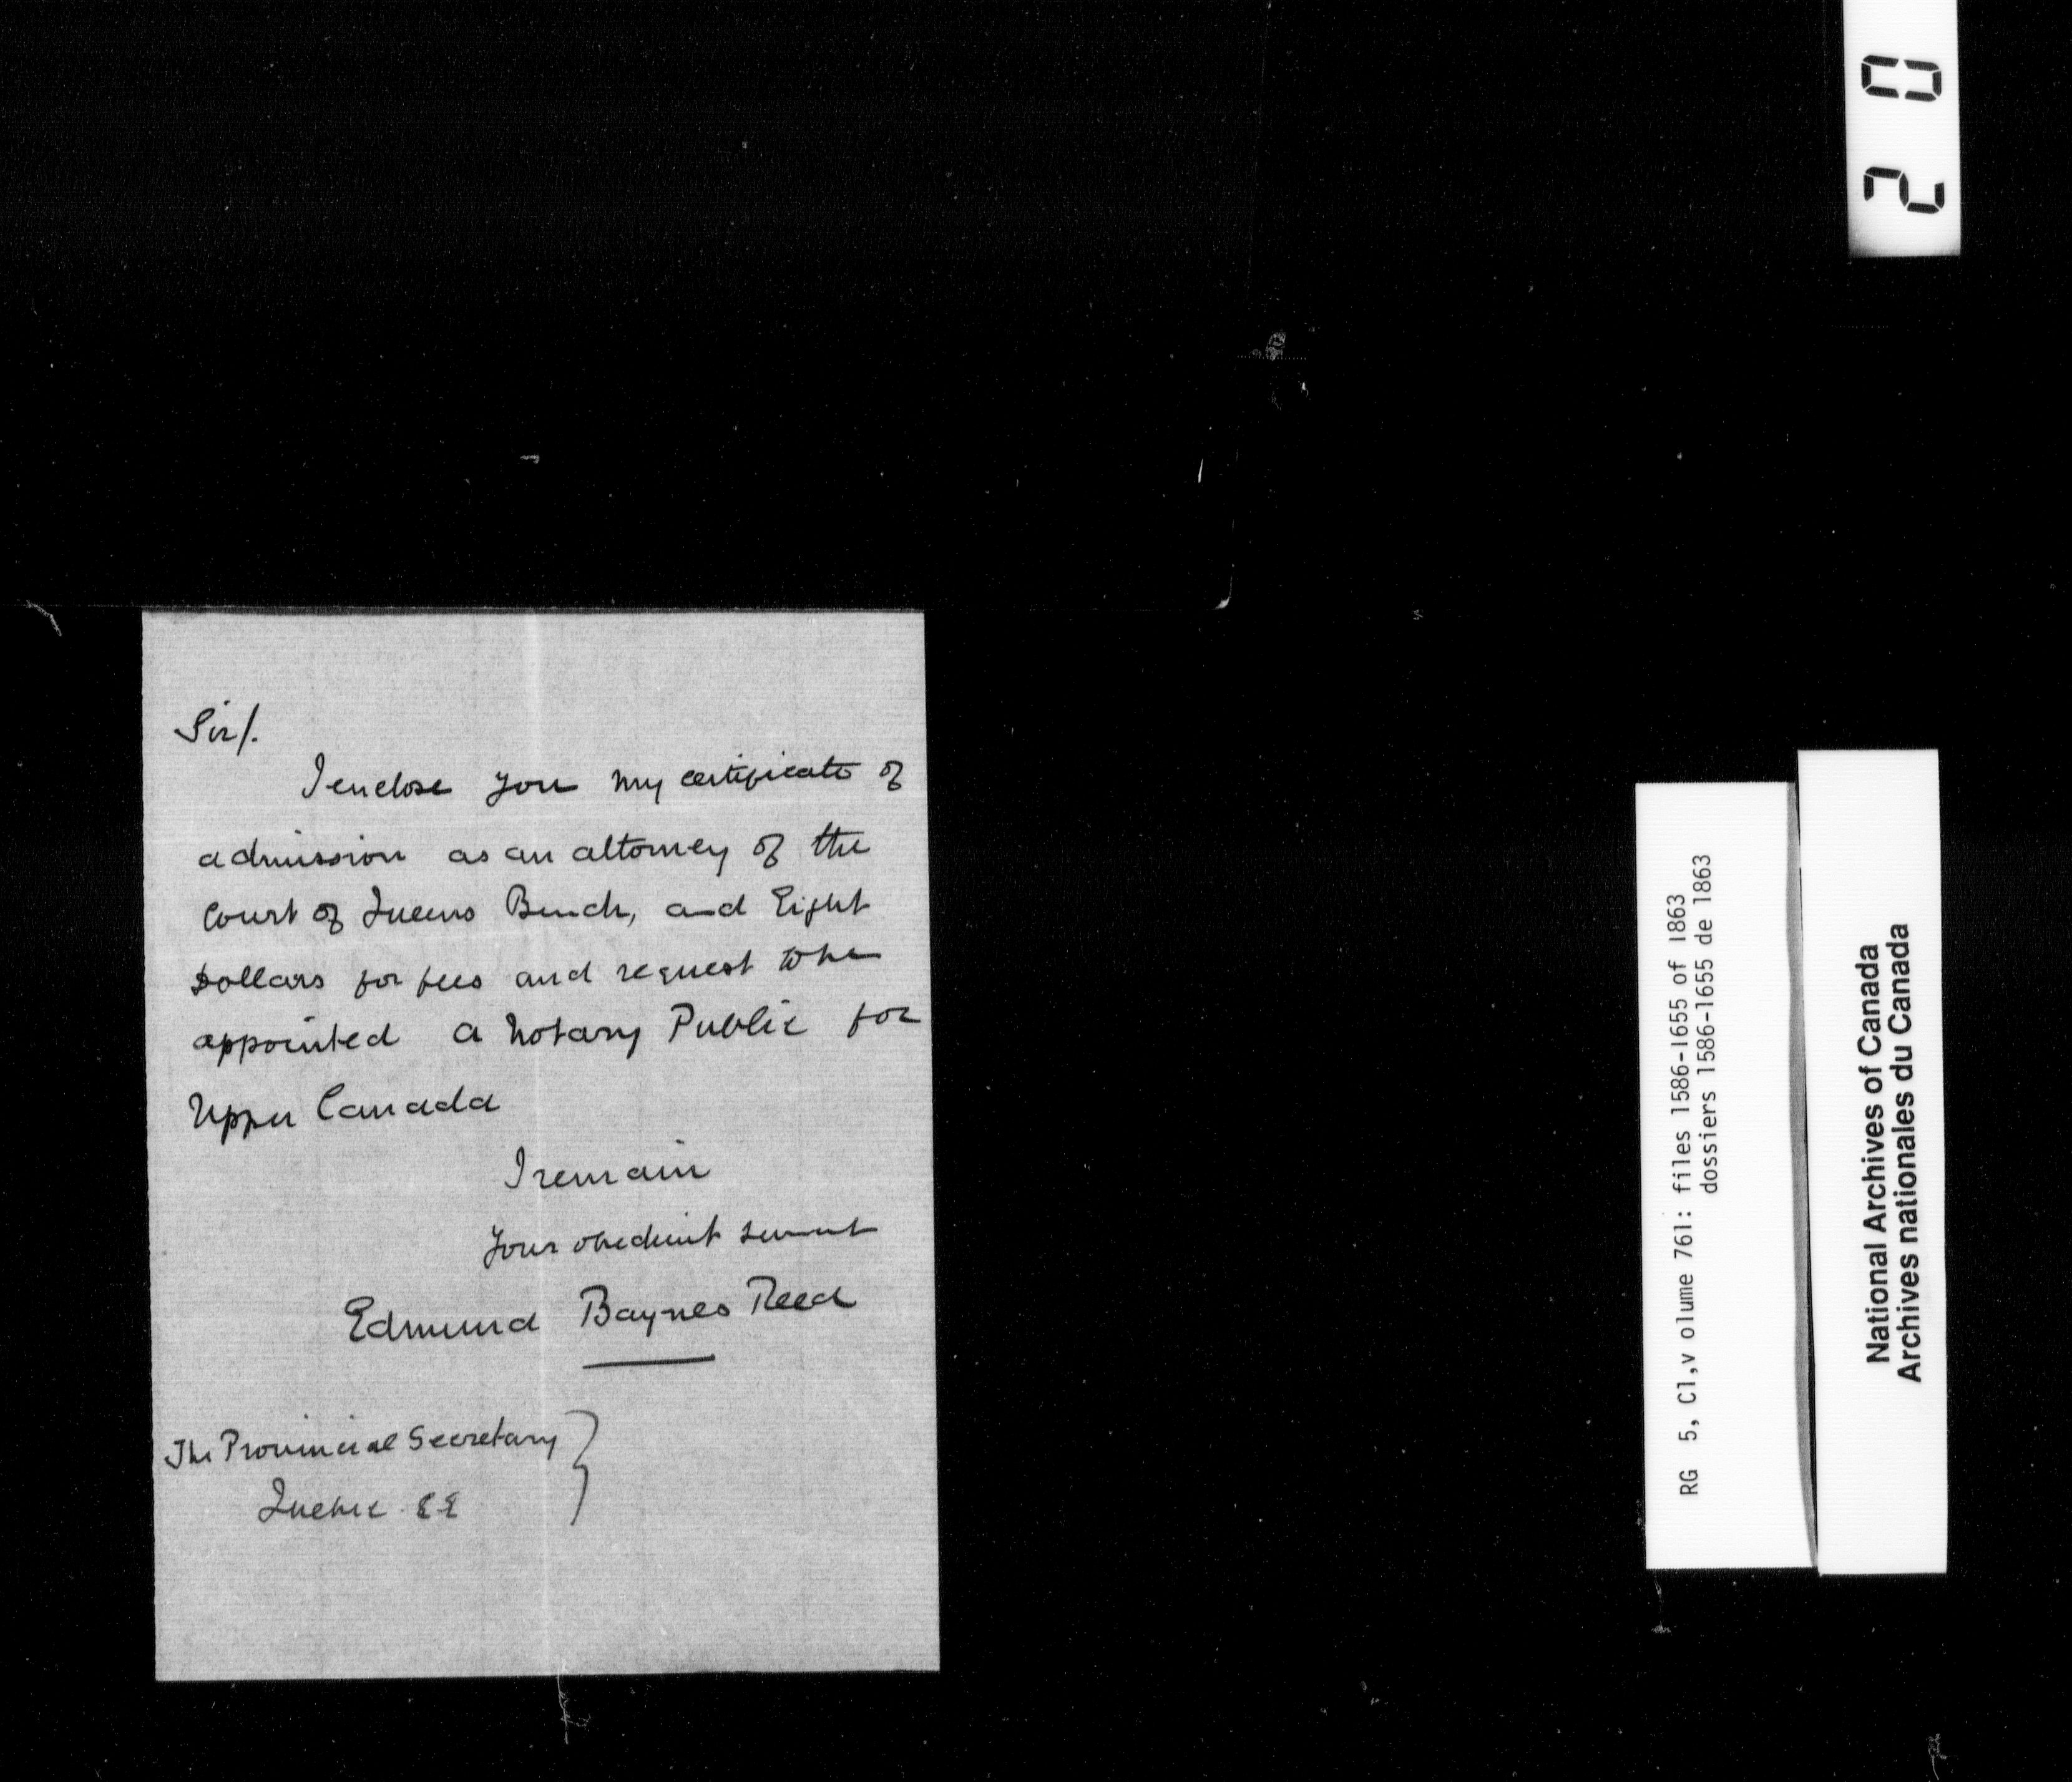 Sir/.
I enclose you my certificate of
admission as an attorney of the
Court of Queens Bench, and Eight
Dollars for fees and request to be
appointed a Notary Public for
Upper Canada
I remain
Your obedient servant
Edmund Baynes Reed
The Provincial Secretary
Quebec
20
RG 5, C1,v olume 761: files 1586-1655 of 1863
dossiers 1586-1655 de 1863
National Archives of Canada
Archives nationales du Canada